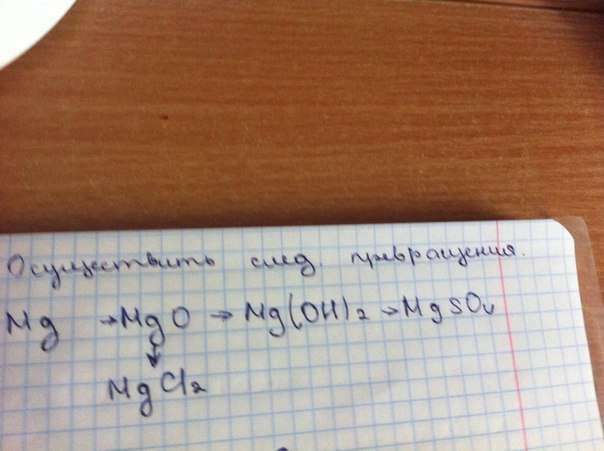 Осуществить след. превращения.
Mg → MgO → Mg(OH)₂ → MgSO₄
↓
MgCl₂